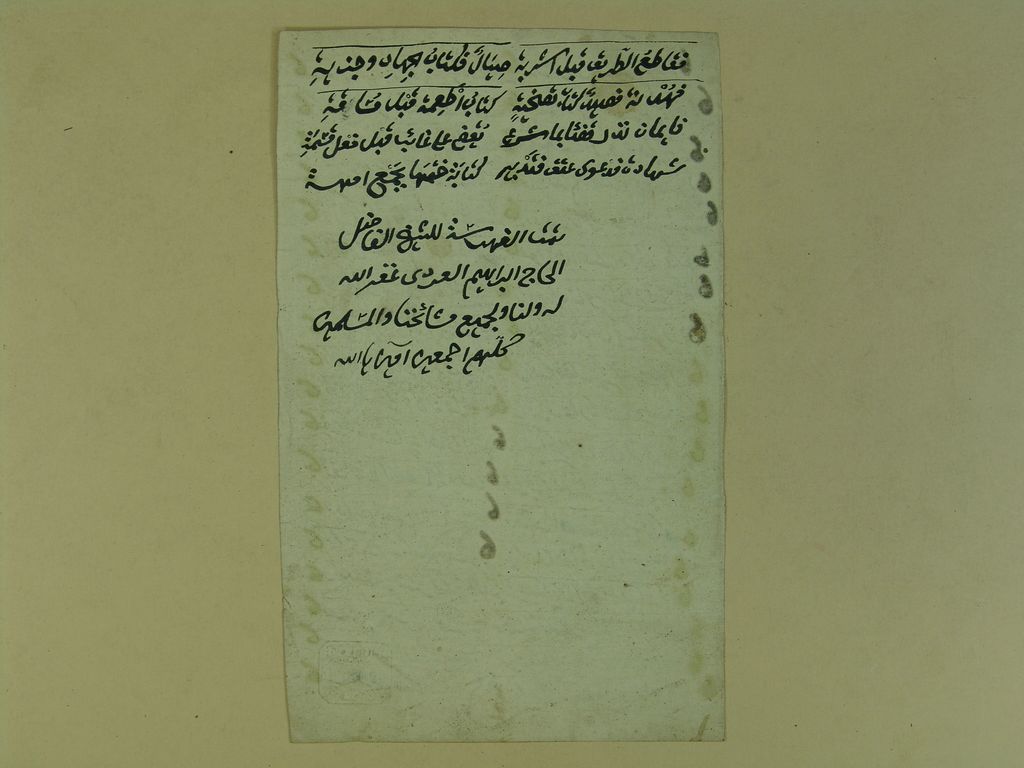 فقاطع الطريق قبل اشربة صيال فكتاب الجهاد وجزية
فهدنة فصيد كتاب تضحية كتاب أطعمة قبل مسابقة
فايمان نذر فقضايا شرع يقضى على غائب قبل فعل قسمة
شهادة فدعوى عتق فتدبير كتابة ختمها بجمع امهة
تمت الفهرسة للشيخ الفاضل
الحاج ابراهيم العودى غفر الله
له ولنا ولجميع مشائخنا والمسلمين
كلهم اجمعين امين يا الله